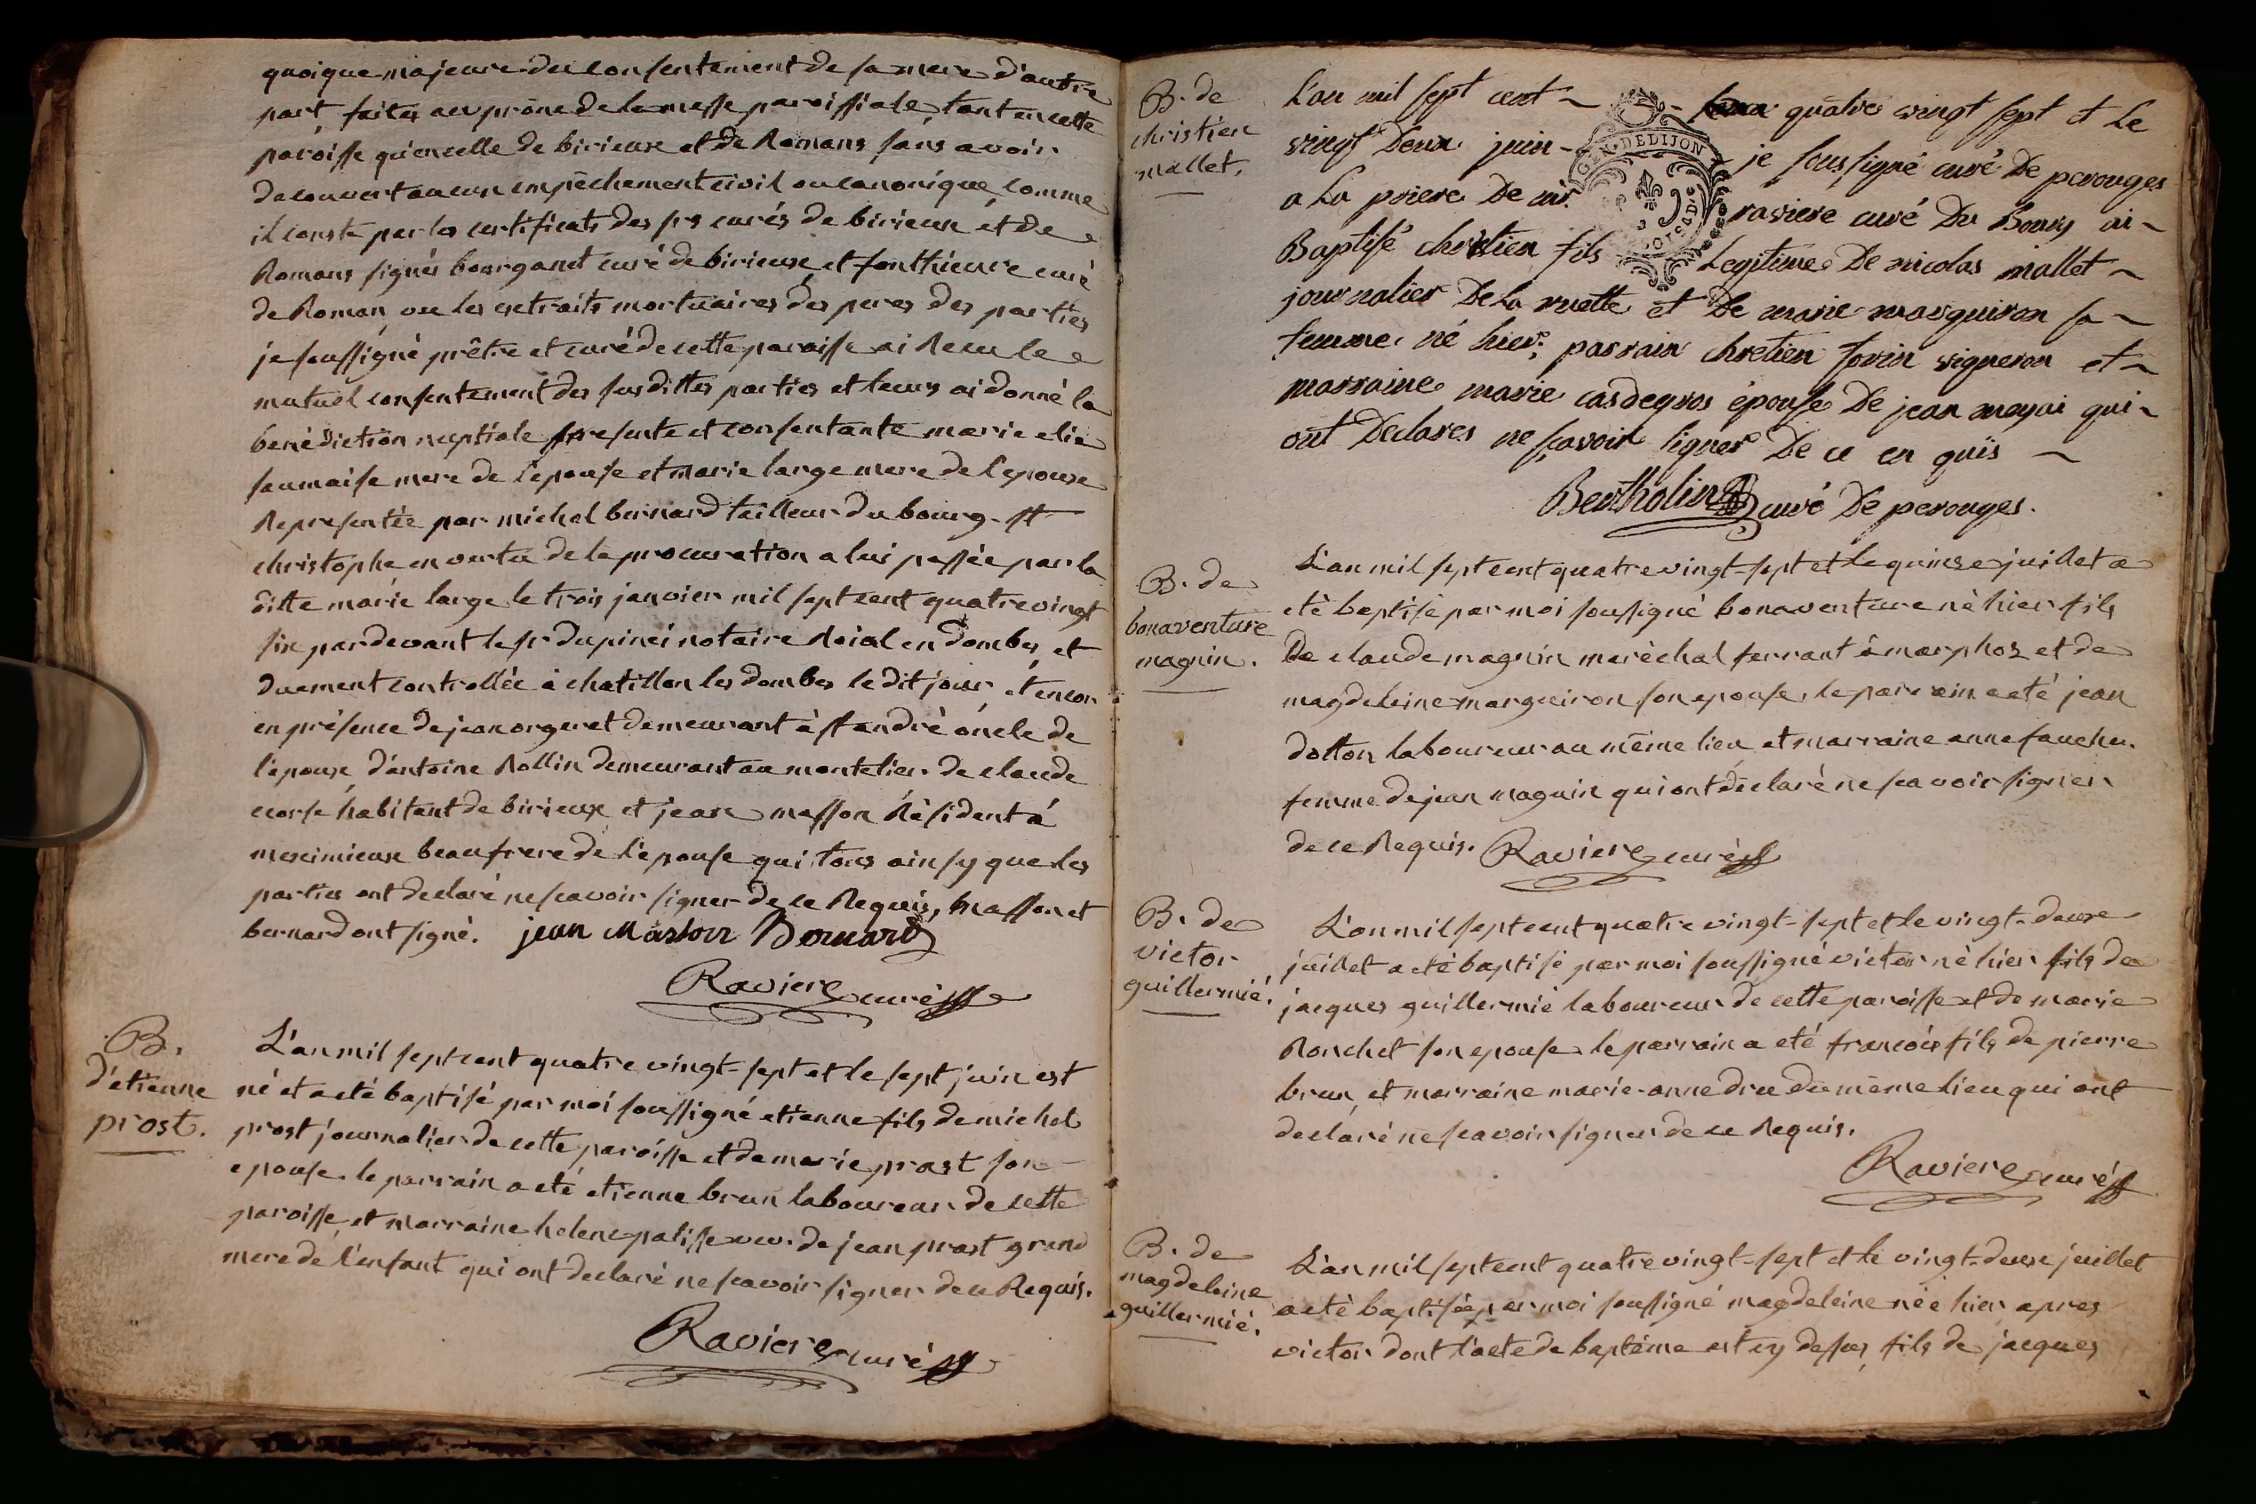 quoique majeure du consentement de sa mere d'autre
part, faites au prône de la messe paroissiale, tant en cette
paroisse qu'en celle de birieux et de Romans sans avoir
decouvert aucun empêchement civil ou canonique, comme
il conste par les certificats des srs curés de birieux et de
Romans signés bourganet curé de birieux, et fonthieure curé
de Roman, vu les extraits mortuaires des peres des parties
je soussigné prêtre et curé de cette paroisse ai Recu le
mutuel consentement des susdittes parties et leurs ai donné la
benédiction nuptiale presente et consentante marie elie
saumaise mere de l'epouse et marie large mere de l'epoux
Representée par michel bernard tailleur du bourg-st
christophe en vertu de la procuration a lui passée par la
ditte marie large le trois janvier mil sept cent quatre vingt
six pardevant le sr dupinei notaire Roial en dombes, et
duement controllée à chatillon les dombes le dit jour, et encor
en présence de jean orgeret demeurant à st andré oncle de
l'epoux, d'antoine Rollin demeurant au montelier de claude
corse habitant de birieux et jean masson Résident à
meximieux beaufrere de l'epouse qui tous ainsy que les
parties ont declaré ne scavoir signer de ce Requis, masson et
bernard ont signé. jean Masson Bernard
Raviere curé
B.
d'etienne
prost.
L'an mil sept cent quatre vingt-sept et le sept juin est
né et a eté baptisé par moi soussigné etienne fils de michel
prost journalier de cette paroisse et de marie prost son
epouse. le parrain a eté etienne brun laboureur de cette
paroisse, et marraine helene palisse veu. de jean prost grand
mere de l'enfant qui ont declaré ne scavoir signer de ce Requis.
Raviere curé
B. de
christien
mallet.
L'an mil sept cent ~ quatre vingt sept et Le
vingt Deux juin - je soussigné curé De perouges
a La priere De mr. raviere curé Du Bourg ai ~
Baptisé chrétien fils Legitime De nicolas mallet ~
journalier De La ruette et De marie marguiron sa ~
femme né hier. parrain chretien forin vigneron et ~
marraine marie casdegros épouse De jean moyai qui ~
ont Declarés ne sçavoir signer De ce en quis ~
Bertholin curé De perouges.
GEN. DE DIJON
B. de
bonaventure
magnin.
L'an mil sept cent quatre vingt-sept et le quinze juillet a
eté baptisé par moi soussigné bonaventure né hier fils
De claude magnin maréchal ferrant à marphoz et de
magdeleine marguiron son epouse. le parrain a eté jean
dotton laboureur au même lieu, et marraine anne faucher
femme de jean magnin qui ont declaré ne scavoir signer
de ce Requis. Raviere curé
B. de
victor
guillermié.
L'an mil sept cent quatre vingt-sept et le vingt-deux
juillet a eté baptisé par moi soussigné victor né hier fils de
jacques guillermié laboureur de cette paroisse et de marie
Ronchet son epouse. le parrain a eté francois fils de pierre
brun, et marraine marie-anne dru du même lieu qui ont
declaré ne scavoir signer de ce Requis.
Raviere curé
B. de
magdeleine
guillermié.
L'an mil sept cent quatre vingt-sept et le vingt-deux juillet
a eté baptisée par moi soussigné magdeleine née hier apres
victor dont l'acte de baptême est cy dessus, fils de jacques